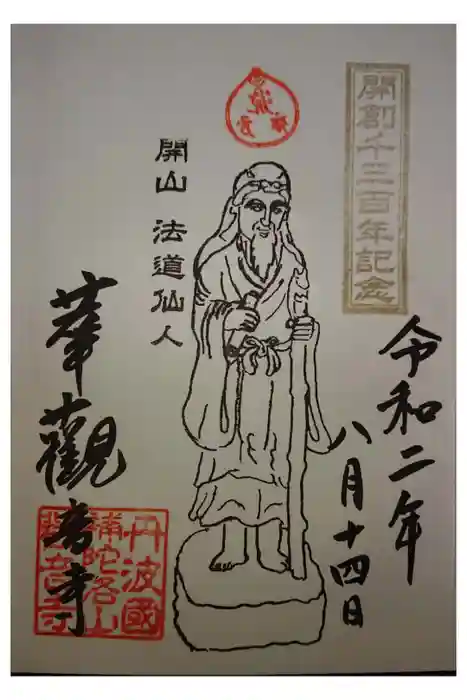 開創千三百年記念
令和二年
八月十四日
開山 法道仙人
華觀音寺
丹波國
補陀洛山
観音寺